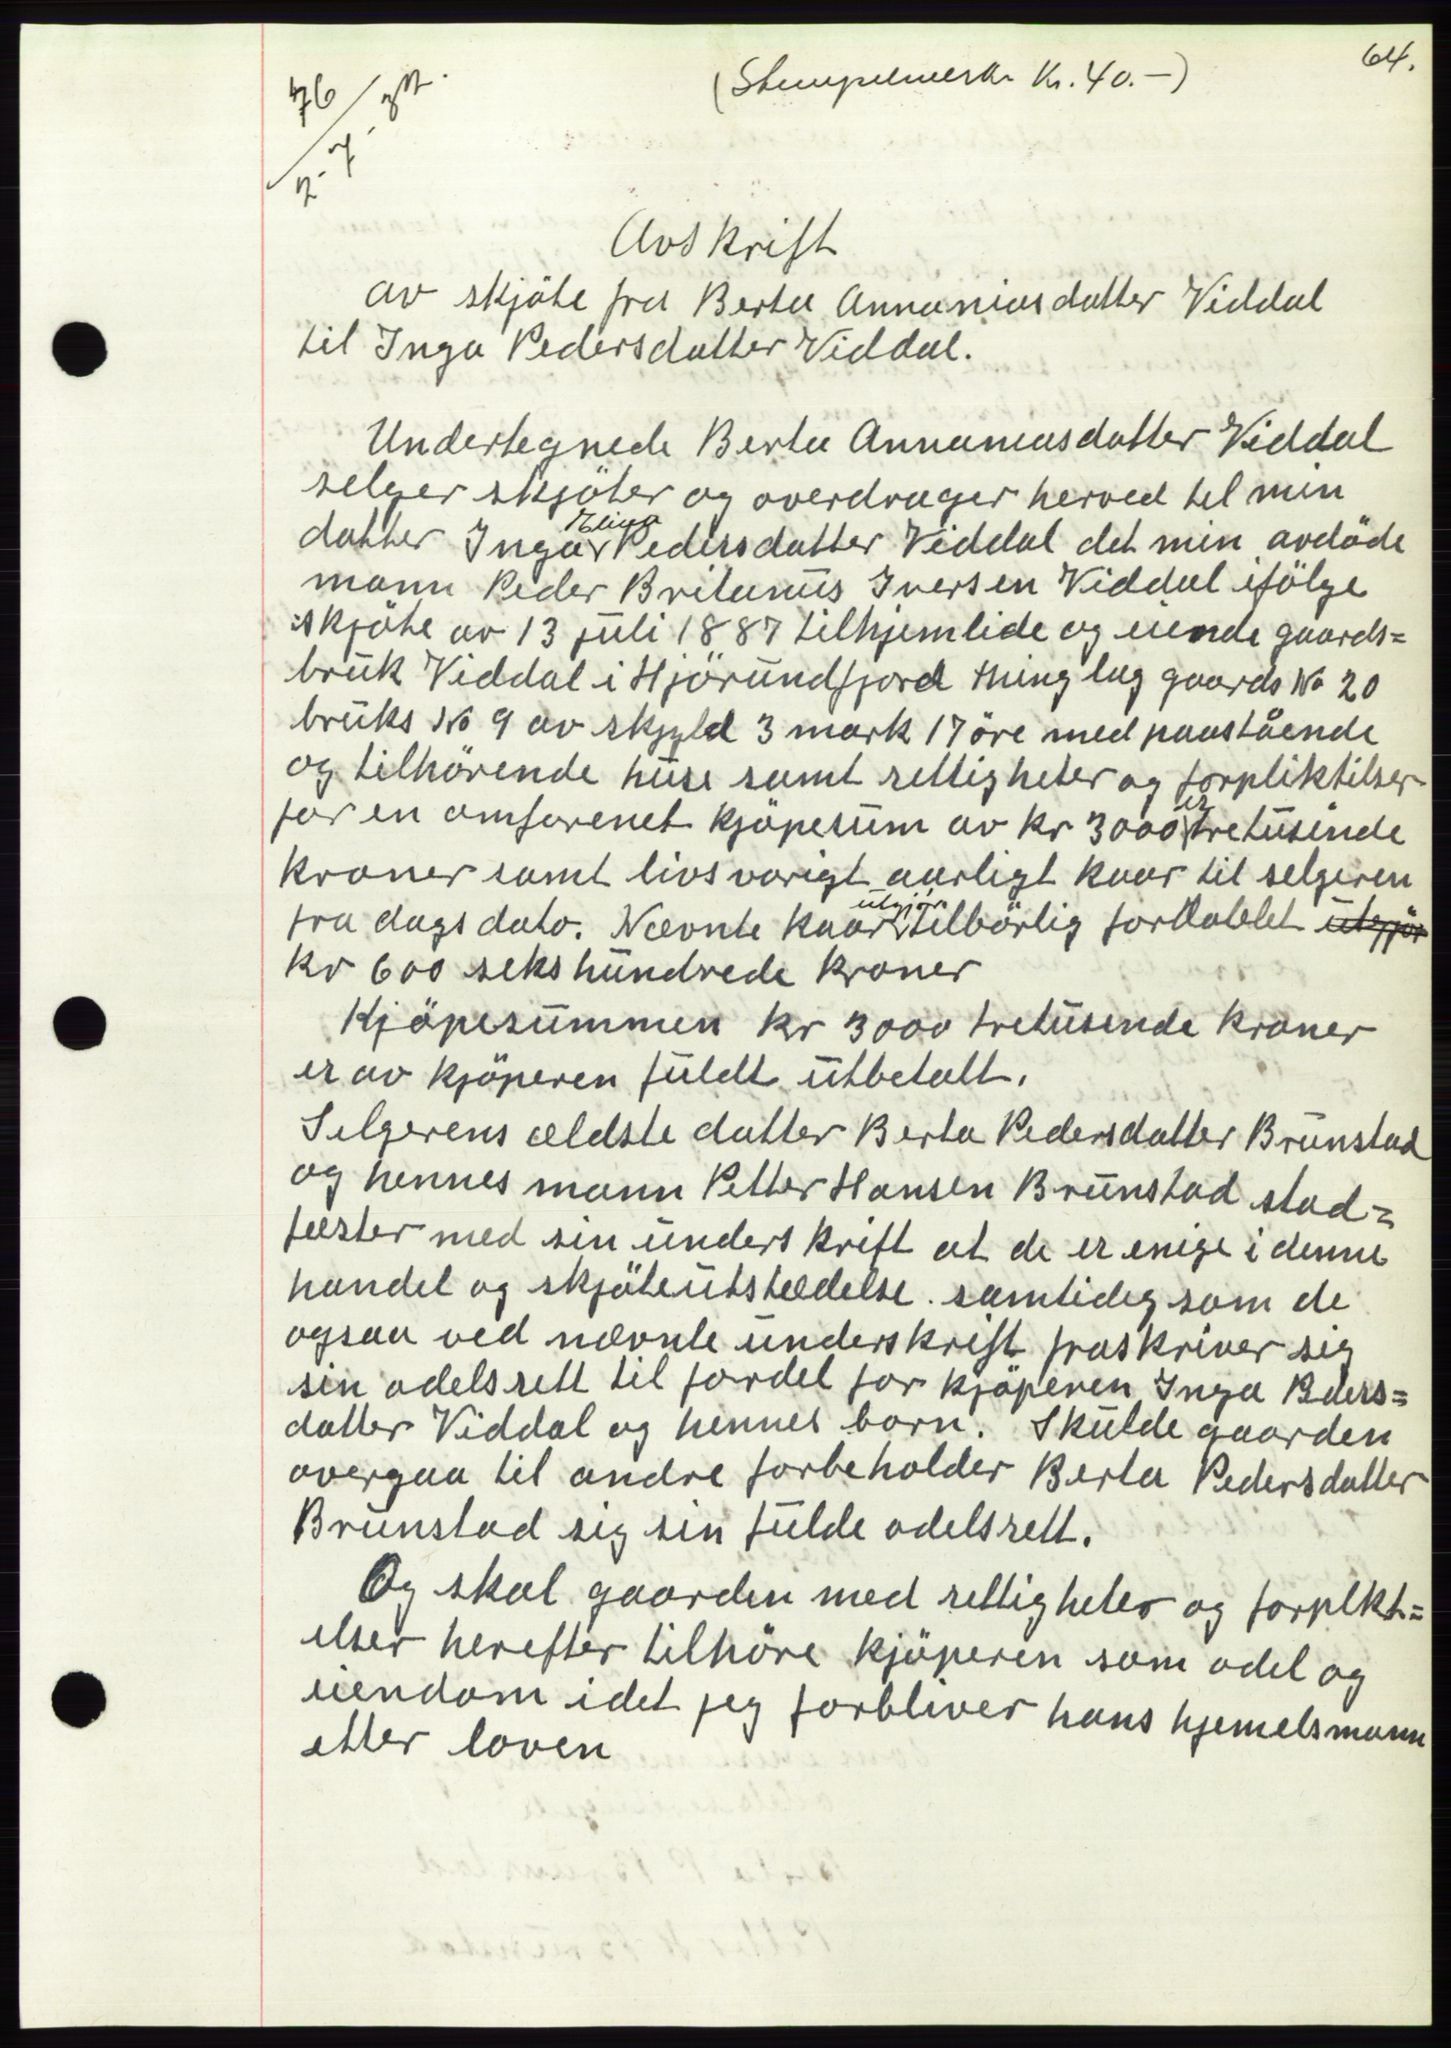 64.
(Stempelmerke Kr. 40.-)
76
2-7-
Avskrift
av skjöte fra Berta Annaniasdatter Viddal
til Inga Pedersdatter Viddal.
Undertegnede Berta Annaniasdatter Viddal
selger skjöter og overdrager herved til min
datter Inga Elina Pedersdatter Viddal det min avdöde
mann Peder Britanus Iversen Viddal ifölge
skjöte av 13 juli 1887 tilhjemlide og eiende gaards=
bruk Viddal i Hjörundfjord thinglag gaards No 20
bruks No 9 av skyld 3 mark 17 öre med paastående
og tilhörende huse samt rettigheter og forpliktilser
for en omforenet kjöpesum av kr 3000 er tretusinde
kroner samt livsvarigt aarligt kaar til selgeren
fra dags dato. Nævnte kaar utgjör tilbörlig fordoblet utgjör
kr 600 sekshundrede kroner
Kjöpesummen kr 3000 tretusende kroner
er av kjöperen fuldt utbetalt.
Selgerens ældste datter Berta Pedersdatter Brunstad
og hennes mann Petter Hansen Brunstad stad=
fæster med sin underskrift at de er enige i denne
handel og skjöteutstædelse. samtideg som de
ogsaa ved nævnte underskrift fraskriver sig
sin odelsrett til fordel for kjöperen Inga Peders=
datter Viddal og hennes born. Skulde gaarden
overgaa til andre forbeholder Berta Pedersdatter
Brunstad sig sin fulde odelsrett.
Og skal gaarden med rettigheter og forplkt=
elser herefter tilhöre kjöperen som odel og
eiendom idet jeg forbliver hans hjemelsmann
etter loven